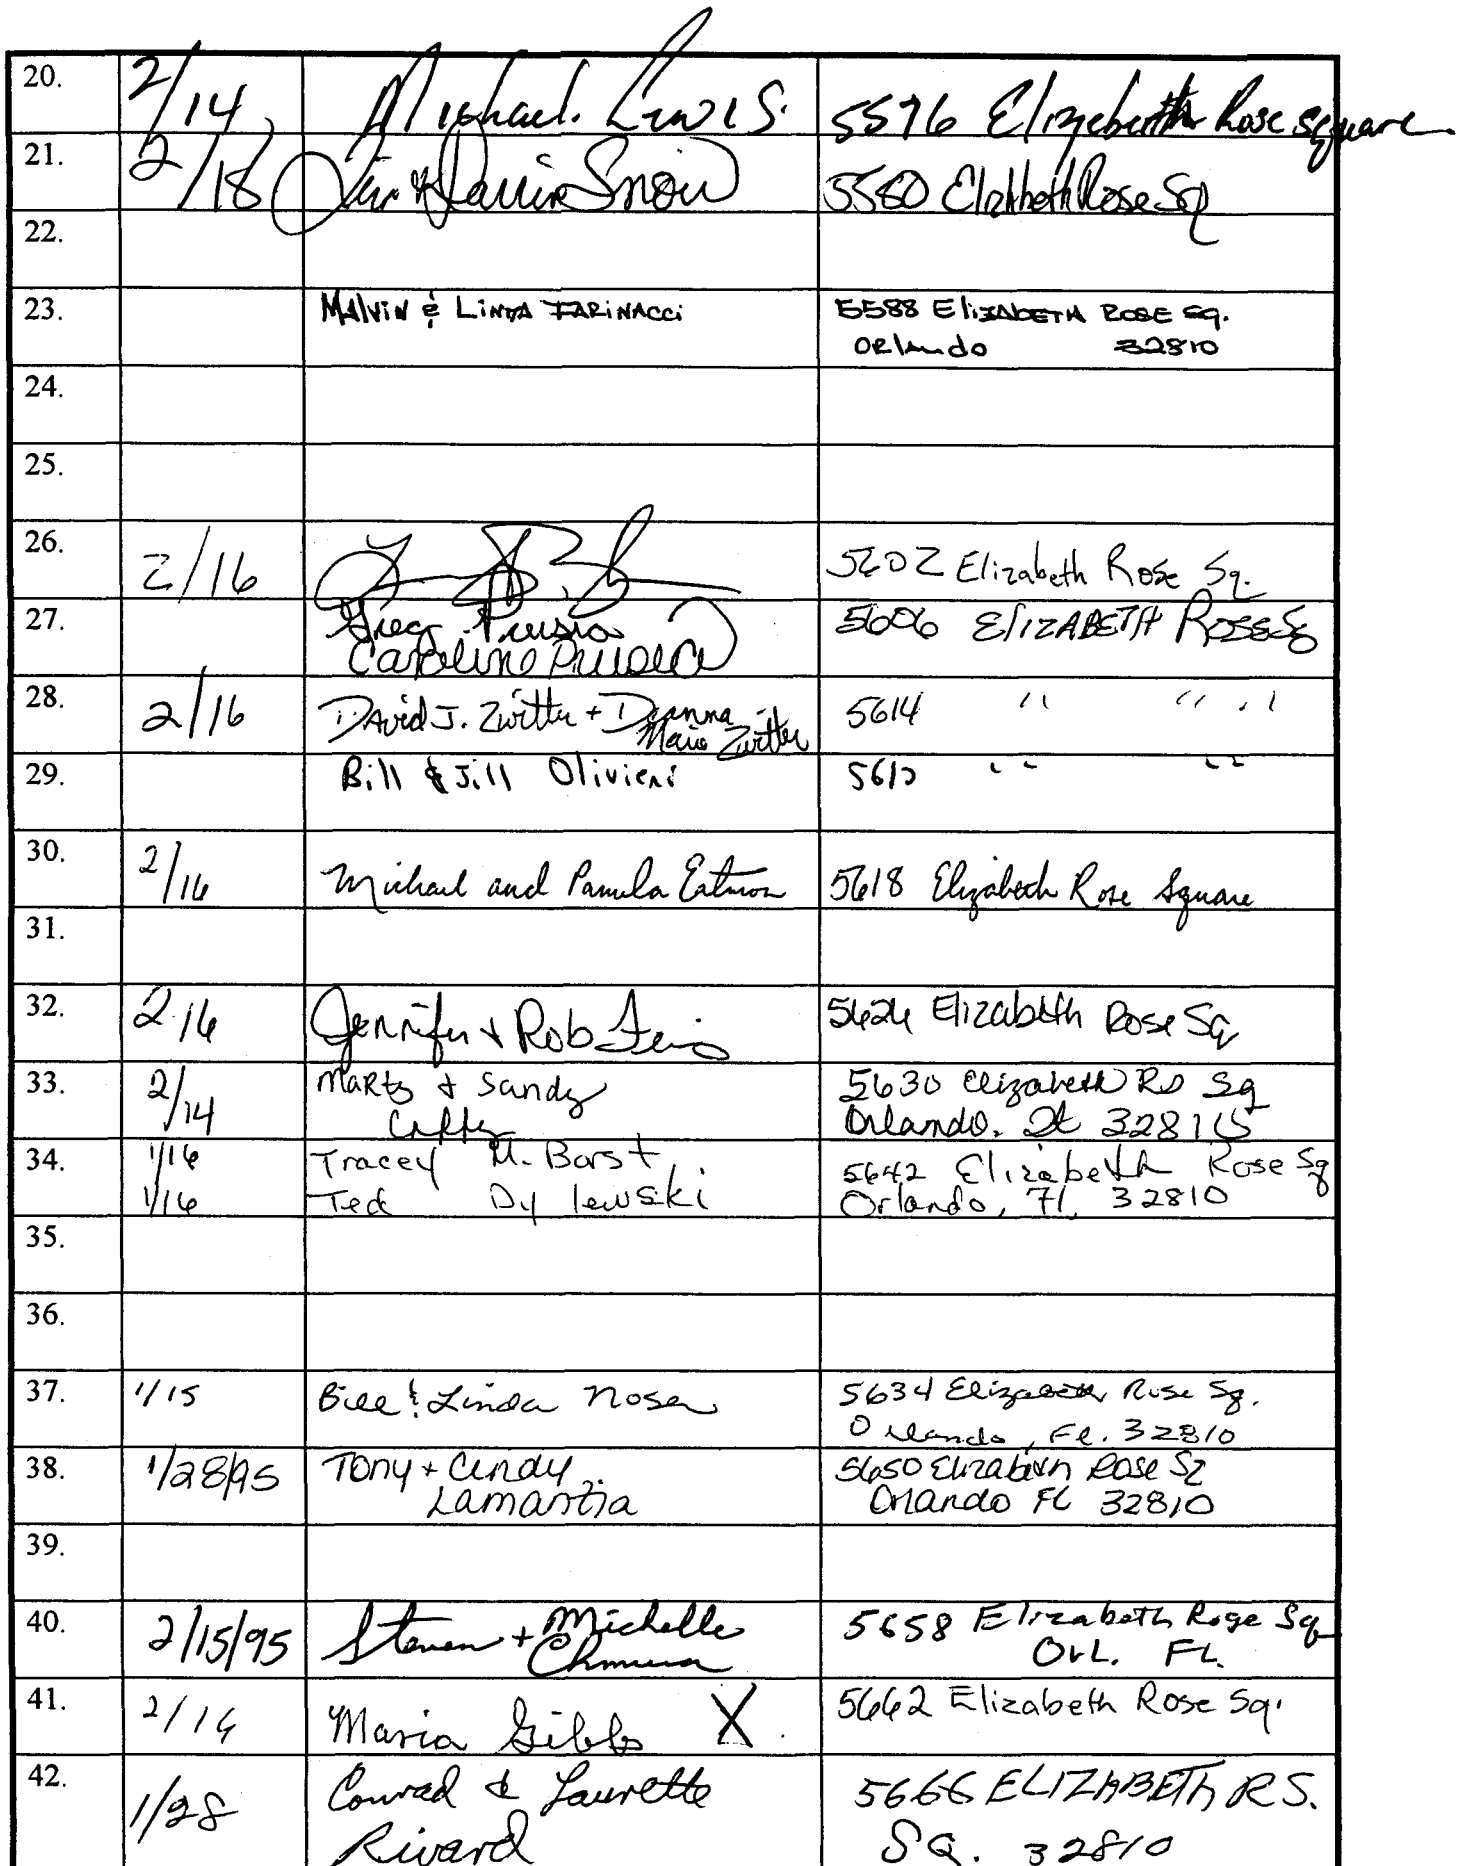 20. 2/14 Michael. Lewis. 5576 Elizeberth Rose square
21. 2/18 Darrin Snow 5580 Elizabeth Rose Sq
22.
23. MALVIN & LINDA FARINACCI 5588 ElizABETH ROSE SQ.
ORlando 32810
24.
25.
26. 2/16 5602 Elizabeth Rose Sq.
27. Greg Prusia 5606 ElIZABETH ROSE SQ
Caroline Prusia
28. 2/16 DAvid J. Zwitter + Deanna 5614 " " "
Marie Zwitter
29. Bill & Jill Olivieri 561 " "
30. 2/16 Michael and Pamela Eatmon 5618 Elizabeth Rose Square
31.
32. 2 16 Jennifer + Rob 5626 Elizabeth Rose Sq
33. 2/14 Marty & Sandy 5630 Elizabeth Rs Sq
Orlando, 32810
34. 1/16 Tracey M. Borst 5642 Elizabeth Rose Sq
1/16 Ted Dylewski Orlando, Fl. 32810
35.
36.
37. 1/15 Bill & Linda Nosen 5634 Elizabeth Rose Sq.
Orlando, Fl. 32810
38. 1/28/95 Tony + Cindy 5650 Elizabeth Rose Sq
Lamartia Orlando FL 32810
39.
40. 2/15/95 Steven + Michelle 5658 Elizabeth Roge Sq
Chmura Orl. FL.
41. 2/14 Maria Gibbs X 5662 Elizabeth Rose Sq.
42. 1/28 Conrad & Laurette 5666 ELIZABETH RS.
Rivard SQ. 32810